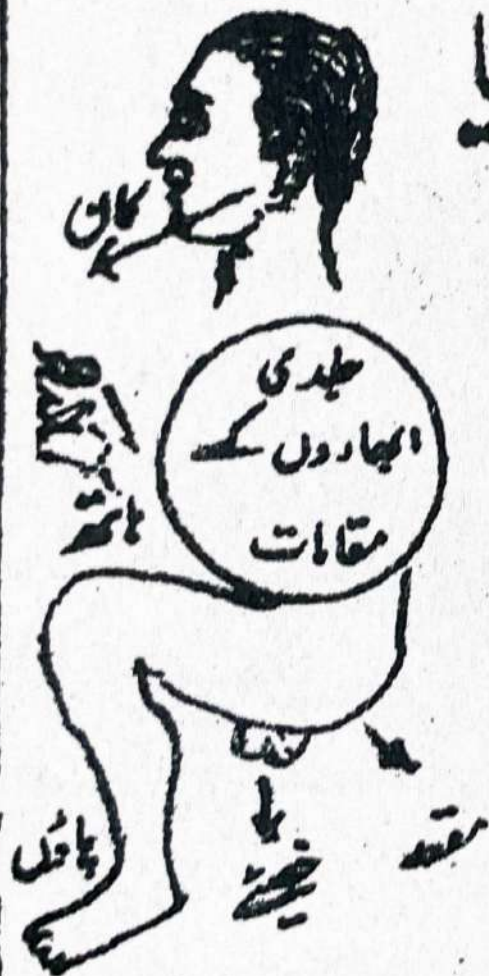 کان
جلدی
ابھاروں کے
مقامات
ہاتھ
پاؤں
خصیئے
مقعد